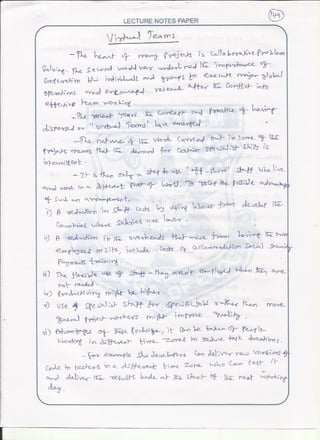 149
LECTURE NOTES PAPER
Virtual Teams
- The heart of many projects is collaborative problem
Solving. The Second world war underlined the importance of
Cooperation btw individuals and groups to execute major global
operations and encouraged research after the conflict into
effective team working.
- In recent years the concept and practice of having
dispersed or "virtual Teams" have emerged.
- The nature of the work carried out in some of the
Projects means that the demand for certain specialist skills is
intermittent.
- It is then only a step to use "off-shore" staff who live
and work in a different part of world. The possible advantages
of such an arrangement,
i) A reduction in staff costs by using labour from developing
Countries where salaries are lower.
ii) A reduction in the overheads that arise from having the own
employees onsite, include costs of accommodation Social security
Payments training.
iii) The flexible use of staff - they aren't employed when they are
not needed.
iv) Productivity might be higher.
v) Use of specialist staff for specific jobs rather than more
general project workers might improve quality.
vi) Advantages of this technique, it can be taken of people
working in different time zones to reduce task durations.
- For example s/w developers can deliver new versions of
Code to testers in a different time zone who can test it
and deliver the results back at the start of the next working
day.